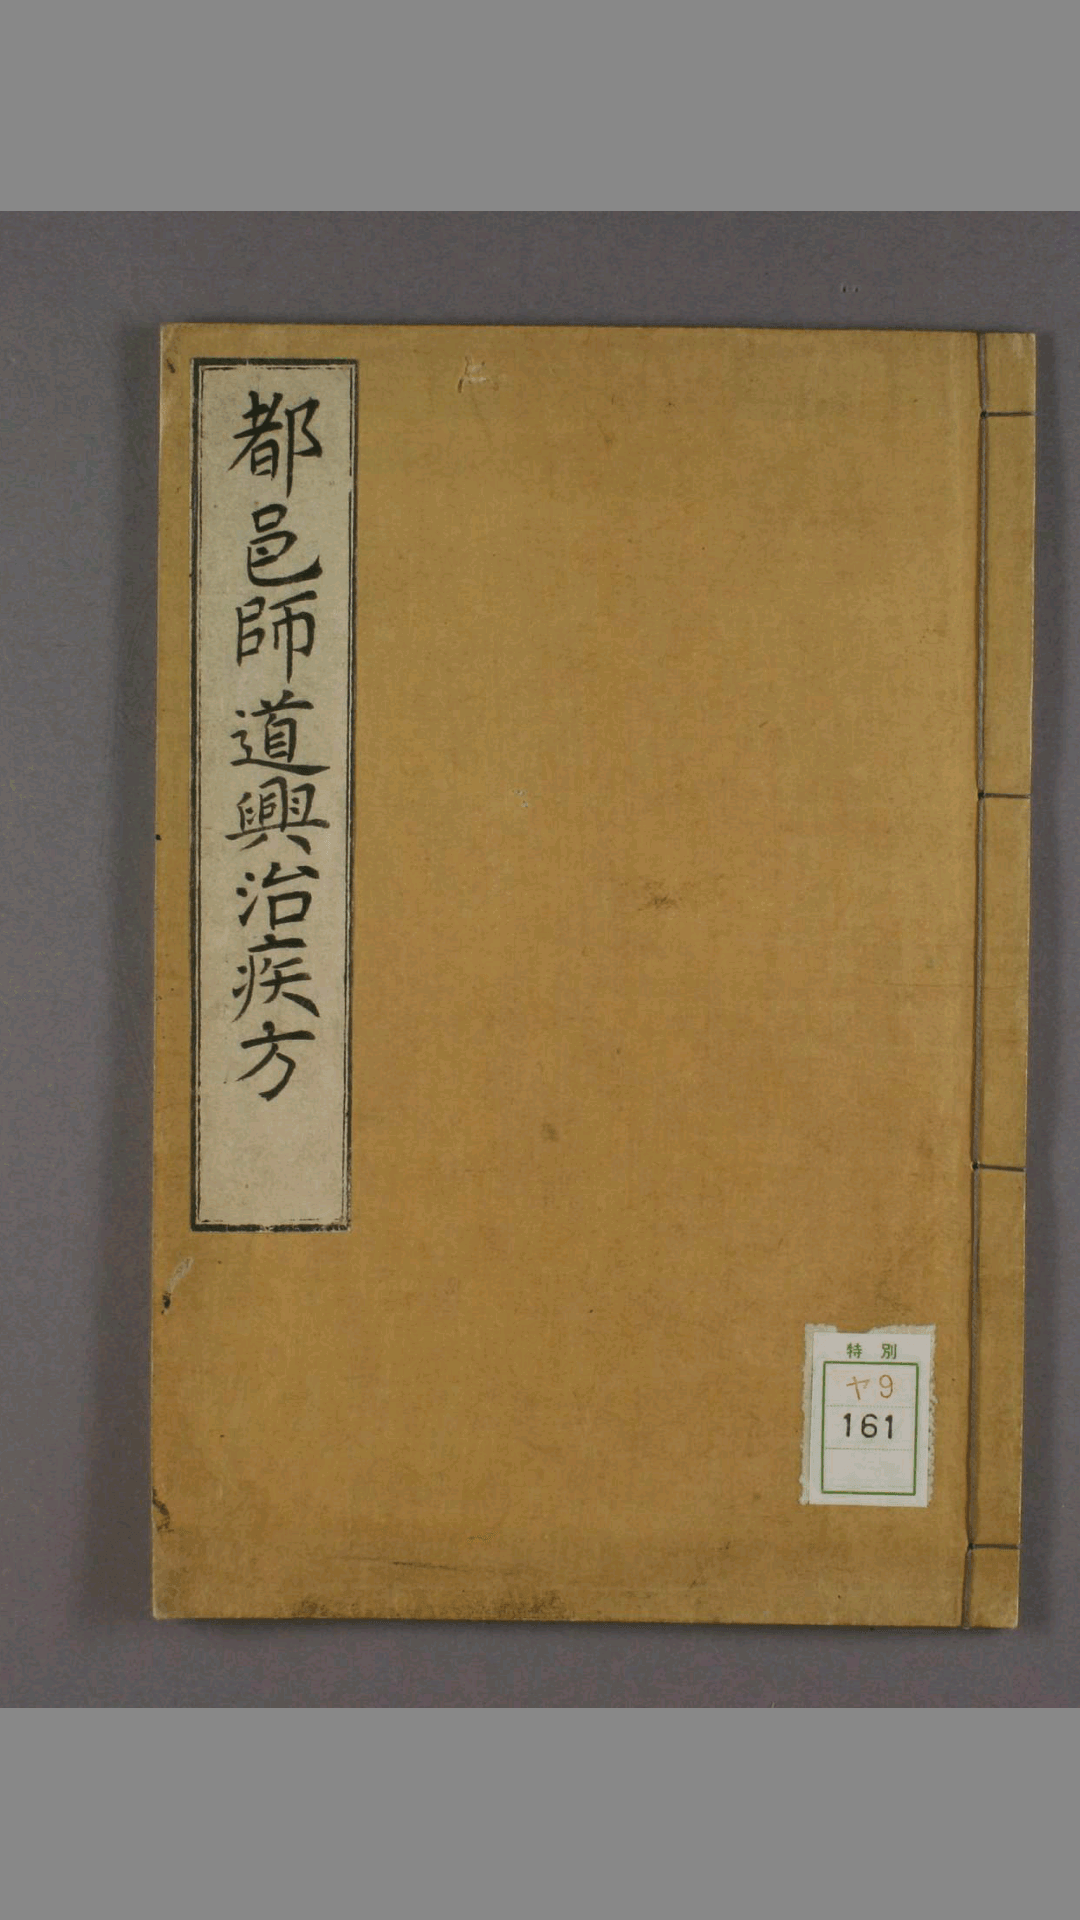 都邑師道興治疾方
特別
ヤ9
161